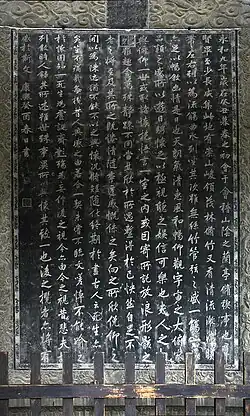 永和九年歲在癸丑暮春之初會于會稽山陰之蘭亭脩禊事也羣
賢畢至少長咸集此地有崇山峻領茂林脩竹又有清流激湍暎
帶左右引以為流觴曲水列坐其次雖無絲竹管弦之盛一觴一詠
亦足以暢敘幽情是日也天朗氣清惠風和暢仰觀宇宙之大俯察
品類之盛所以遊目騁懷足以極視聽之娛信可樂也夫人之相
與俯仰一世或取諸懷抱悟言一室之內或因寄所託放浪形骸之
外雖趣舍萬殊靜躁不同當其欣於所遇蹔得於己快然自足不
知老之將至及其所之既惓情隨事遷感慨係之矣向之所欣俛仰之
間以為陳迹猶不能不以之興懷況脩短隨化終期於盡古人云死生亦大
矣豈不痛哉每攬昔人興感之由若合一契未嘗不臨文嗟悼不能喻之
於懷固知一死生為虛誕齊彭殤為妄作後之視今亦由今之視昔悲夫故
列敘時人錄其所述雖世殊事異所以興懷其致一也後之攬者亦將有
感於斯文 康熙癸酉春日書